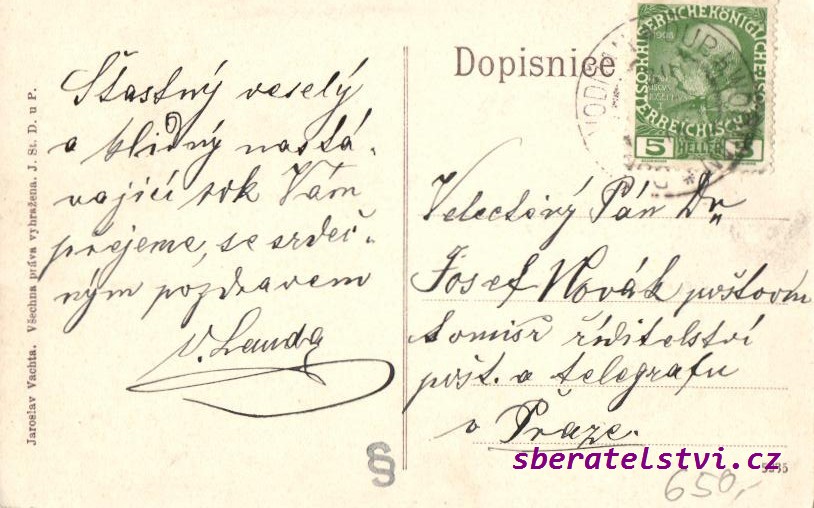 Dopisnice
Šťastný veselý
a klidný nastá-
vající rok Vám
přejeme, se srdeč-
ným pozdravem
V. Landa
Veletěný Pán Dr
Josef Novák poštovní
komisř ředitelství
pošt. a telegrafu
v Praze.
KAISERLICHE KÖNIGLICHE ÖSTERREICHISCHE
1908
5 HELLER 5
Jaroslav Vachta. Všechna práva vyhražena. J. St. D. u P.
§
sberatelstvi.cz
650,-